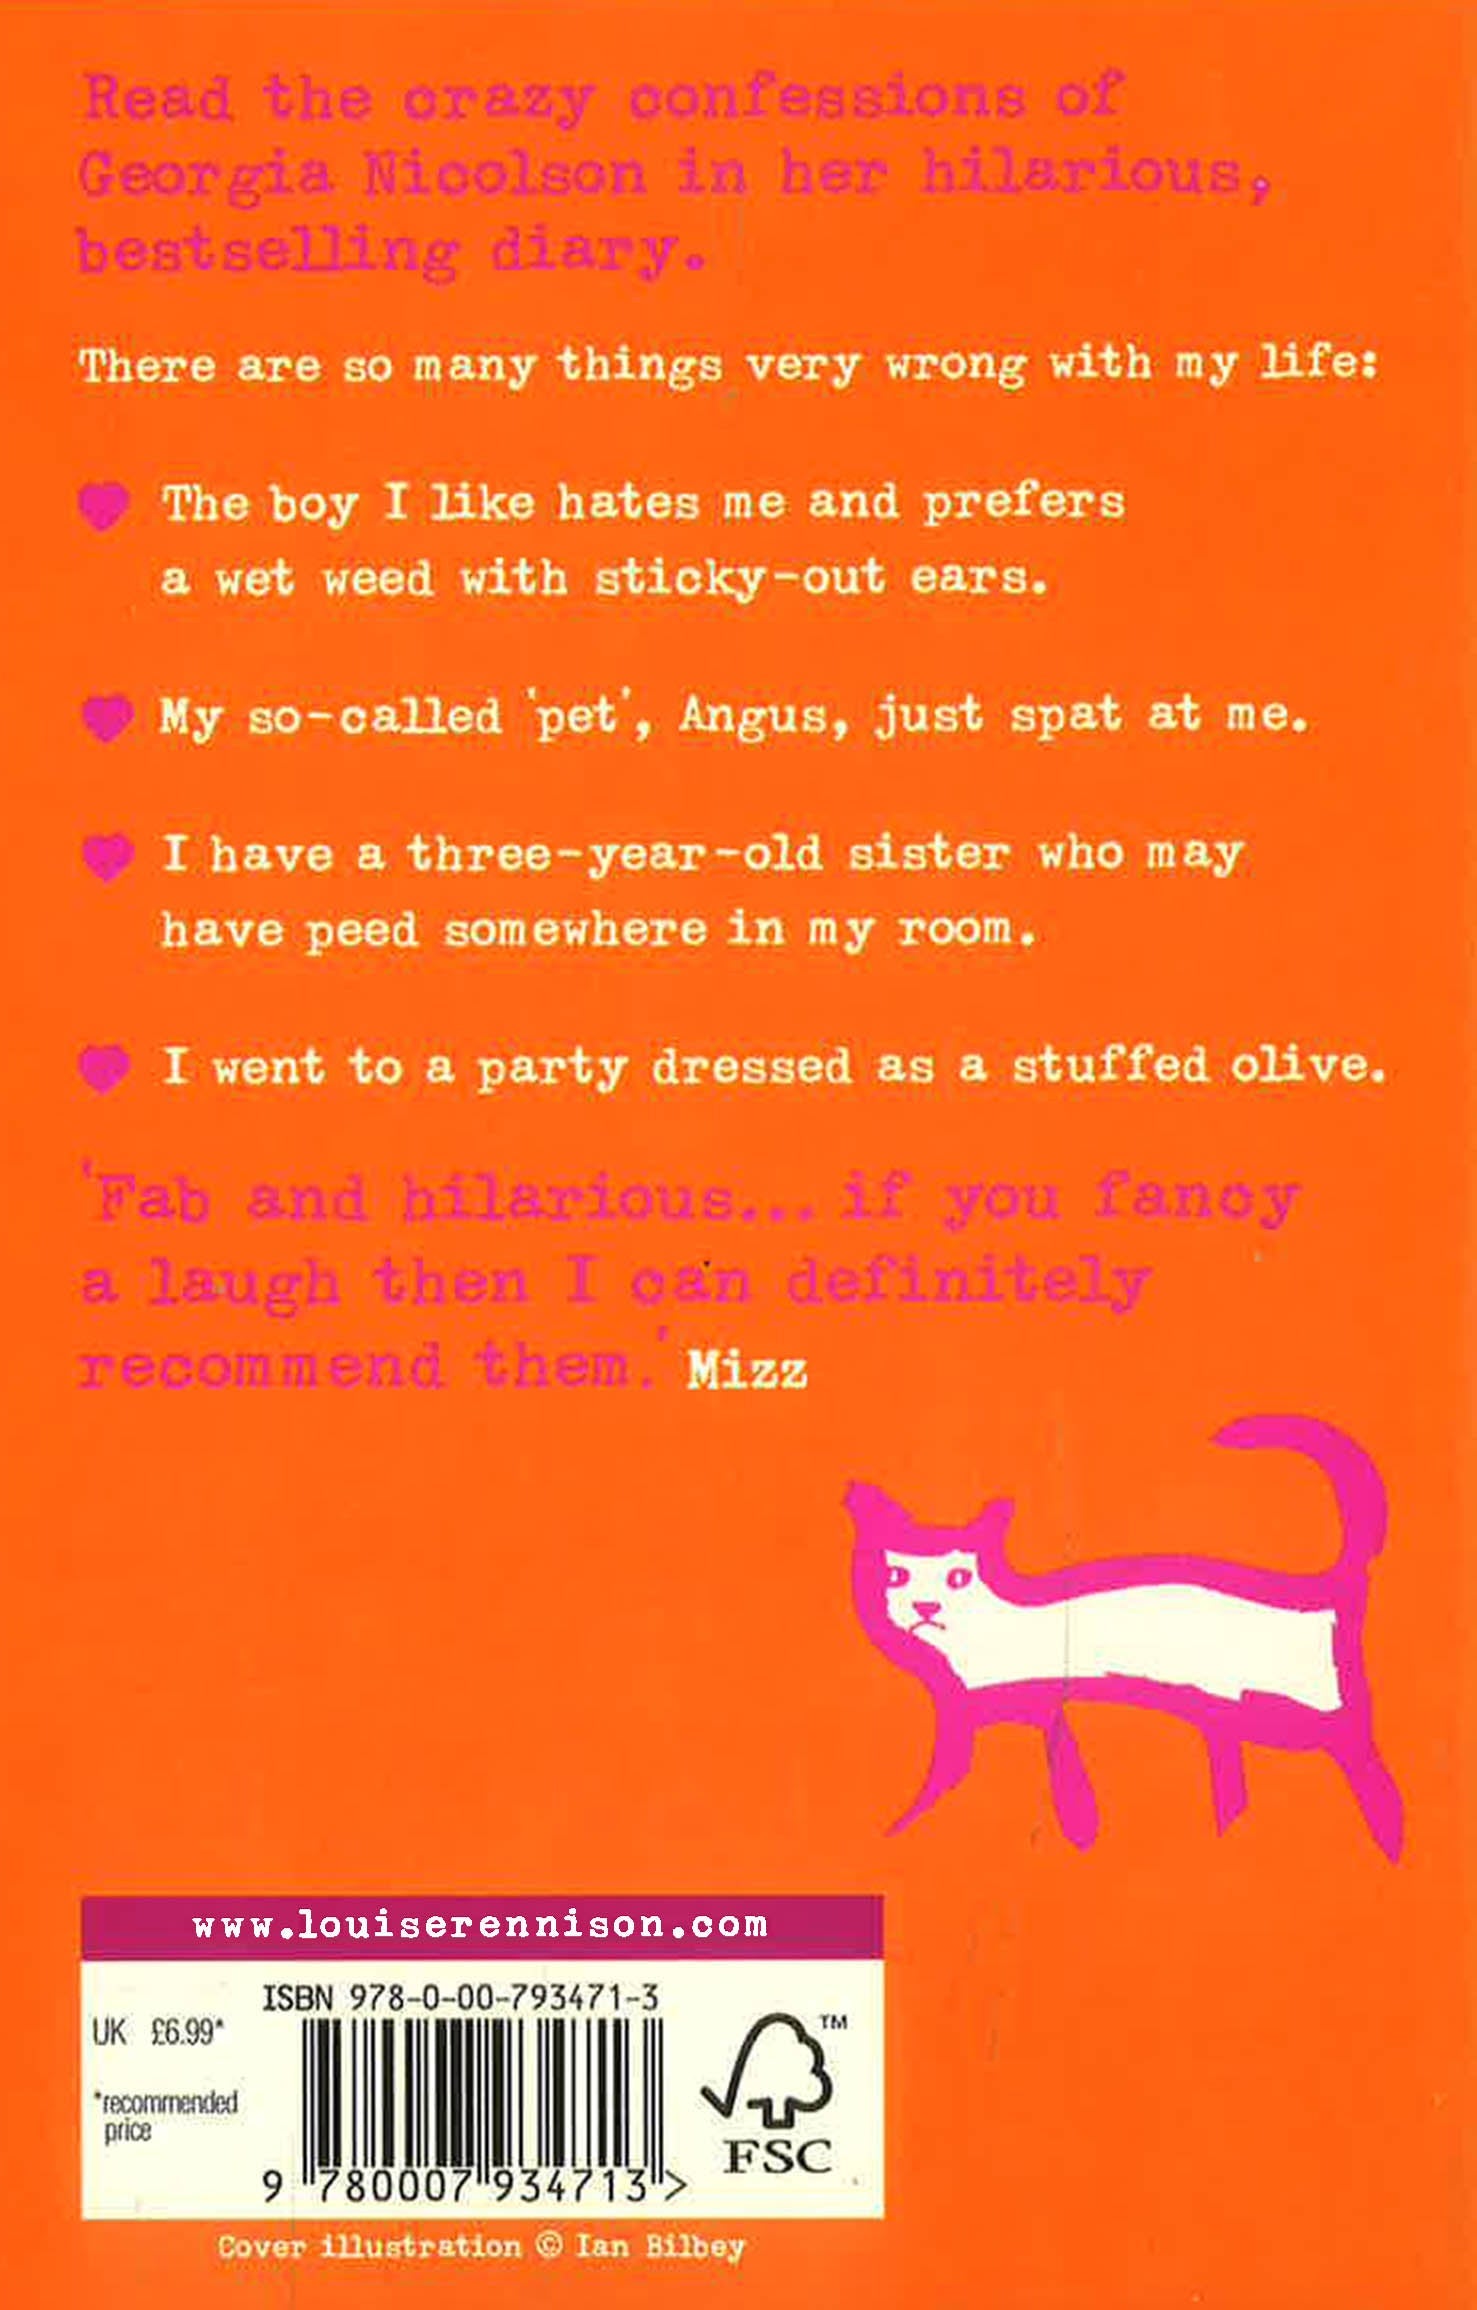 Read the crazy confessions of
Georgia Nicolson in her hilarious,
bestselling diary.
There are so many things very wrong with my life:
The boy I like hates me and prefers
a wet weed with sticky-out ears.
My so-called 'pet', Angus, just spat at me.
I have a three-year-old sister who may
have peed somewhere in my room.
I went to a party dressed as a stuffed olive.
'Fab and hilarious... if you fancy
a laugh then I can definitely
recommend them.' Mizz
www.louiserennison.com
ISBN 978-0-00-793471-3
UK £6.99*
*recommended
price
9 780007 934713 >
TM
FSC
Cover illustration © Ian Bilbey